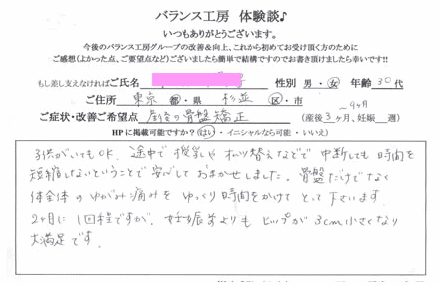 バランス工房 体験談♪
いつもありがとうございます。
今後のバランス工房グループの改善&向上、これから初めてお受け頂く方のために
ご感想(よかった点、ご要望点など)ございましたら簡単で結構ですのでお書き頂けましたら幸いです!!
もし差し支えなければご氏名 性別 男・女 年齢 30代
ご住所 東京 都・県 杉並 区・市
ご症状・改善ご希望点 産後の骨盤矯正 (産後 3ヶ月〜9ヶ月、妊娠 週)
HPに掲載可能ですか?(はい・イニシャルなら可能・いいえ)
子供がいてもOK、途中で授乳やオムツ替えなどで中断しても時間を
短縮しないということで安心しておまかせしました。骨盤だけでなく
体全体のゆがみ痛みをゆっくり時間をかけてとって下さいます。
2ヶ月に1回程ですが、妊娠前よりもヒップが3cm小さくなり
大満足です。